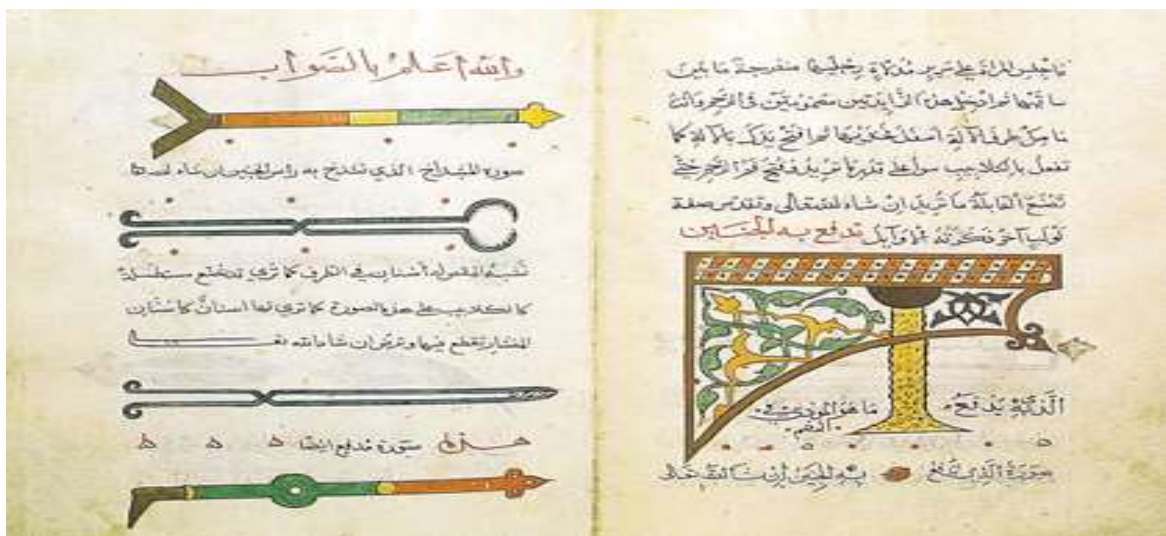 فاجلس المرأة على سرير مدلاة رجليها منفرجة ما بين
ساقيها ثم ادخل هذه الزايدتين مضمومتين في الرحم وانت
ماسك طرف الآلة اسفل فخذيها ثم افتح يدك بالآلة كما
تفعل بالكلاليب سوا على قدر ما تريد فتح فم الرحم حتى
تصنع القابلة ما تريد ان شاء الله تعالى صفة
لولب آخر ذكرته الاوايل تدفع به الجنين
الذي يدفع ما هو المودي في
الفم
صورة الذي تدفع به الجنين ان شا الله
والله أعلم بالصواب
صورة المشداخ الذي تشدخ به راس الجنين ان شاء الله
يشبه المقص له أسنان في الطرف كما ترى
كالكلاليب على هذه الصورة كما ترى لها اسنان كاسنان
المنشار يقطع بها وترض ان شاء الله
صورة مدفع ايضا ه ه ه